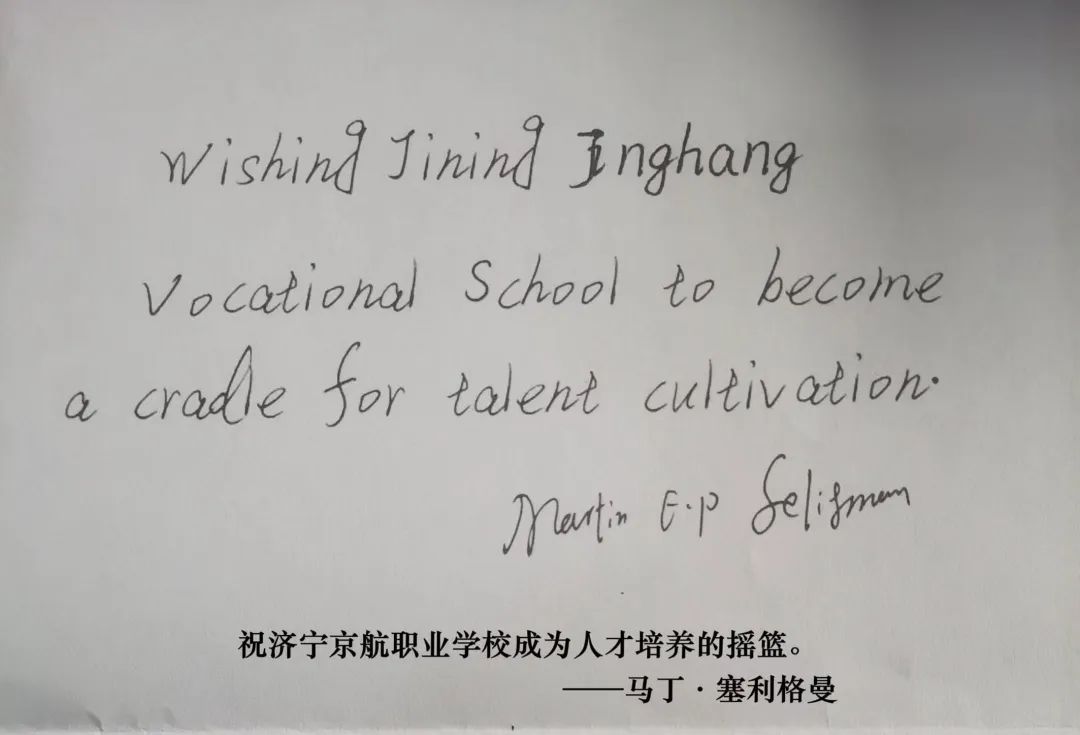 Wishing Jining Jinghang
Vocational School to become
a cradle for talent cultivation.
Martin E.P Seligman
祝济宁京航职业学校成为人才培养的摇篮。
——马丁·塞利格曼